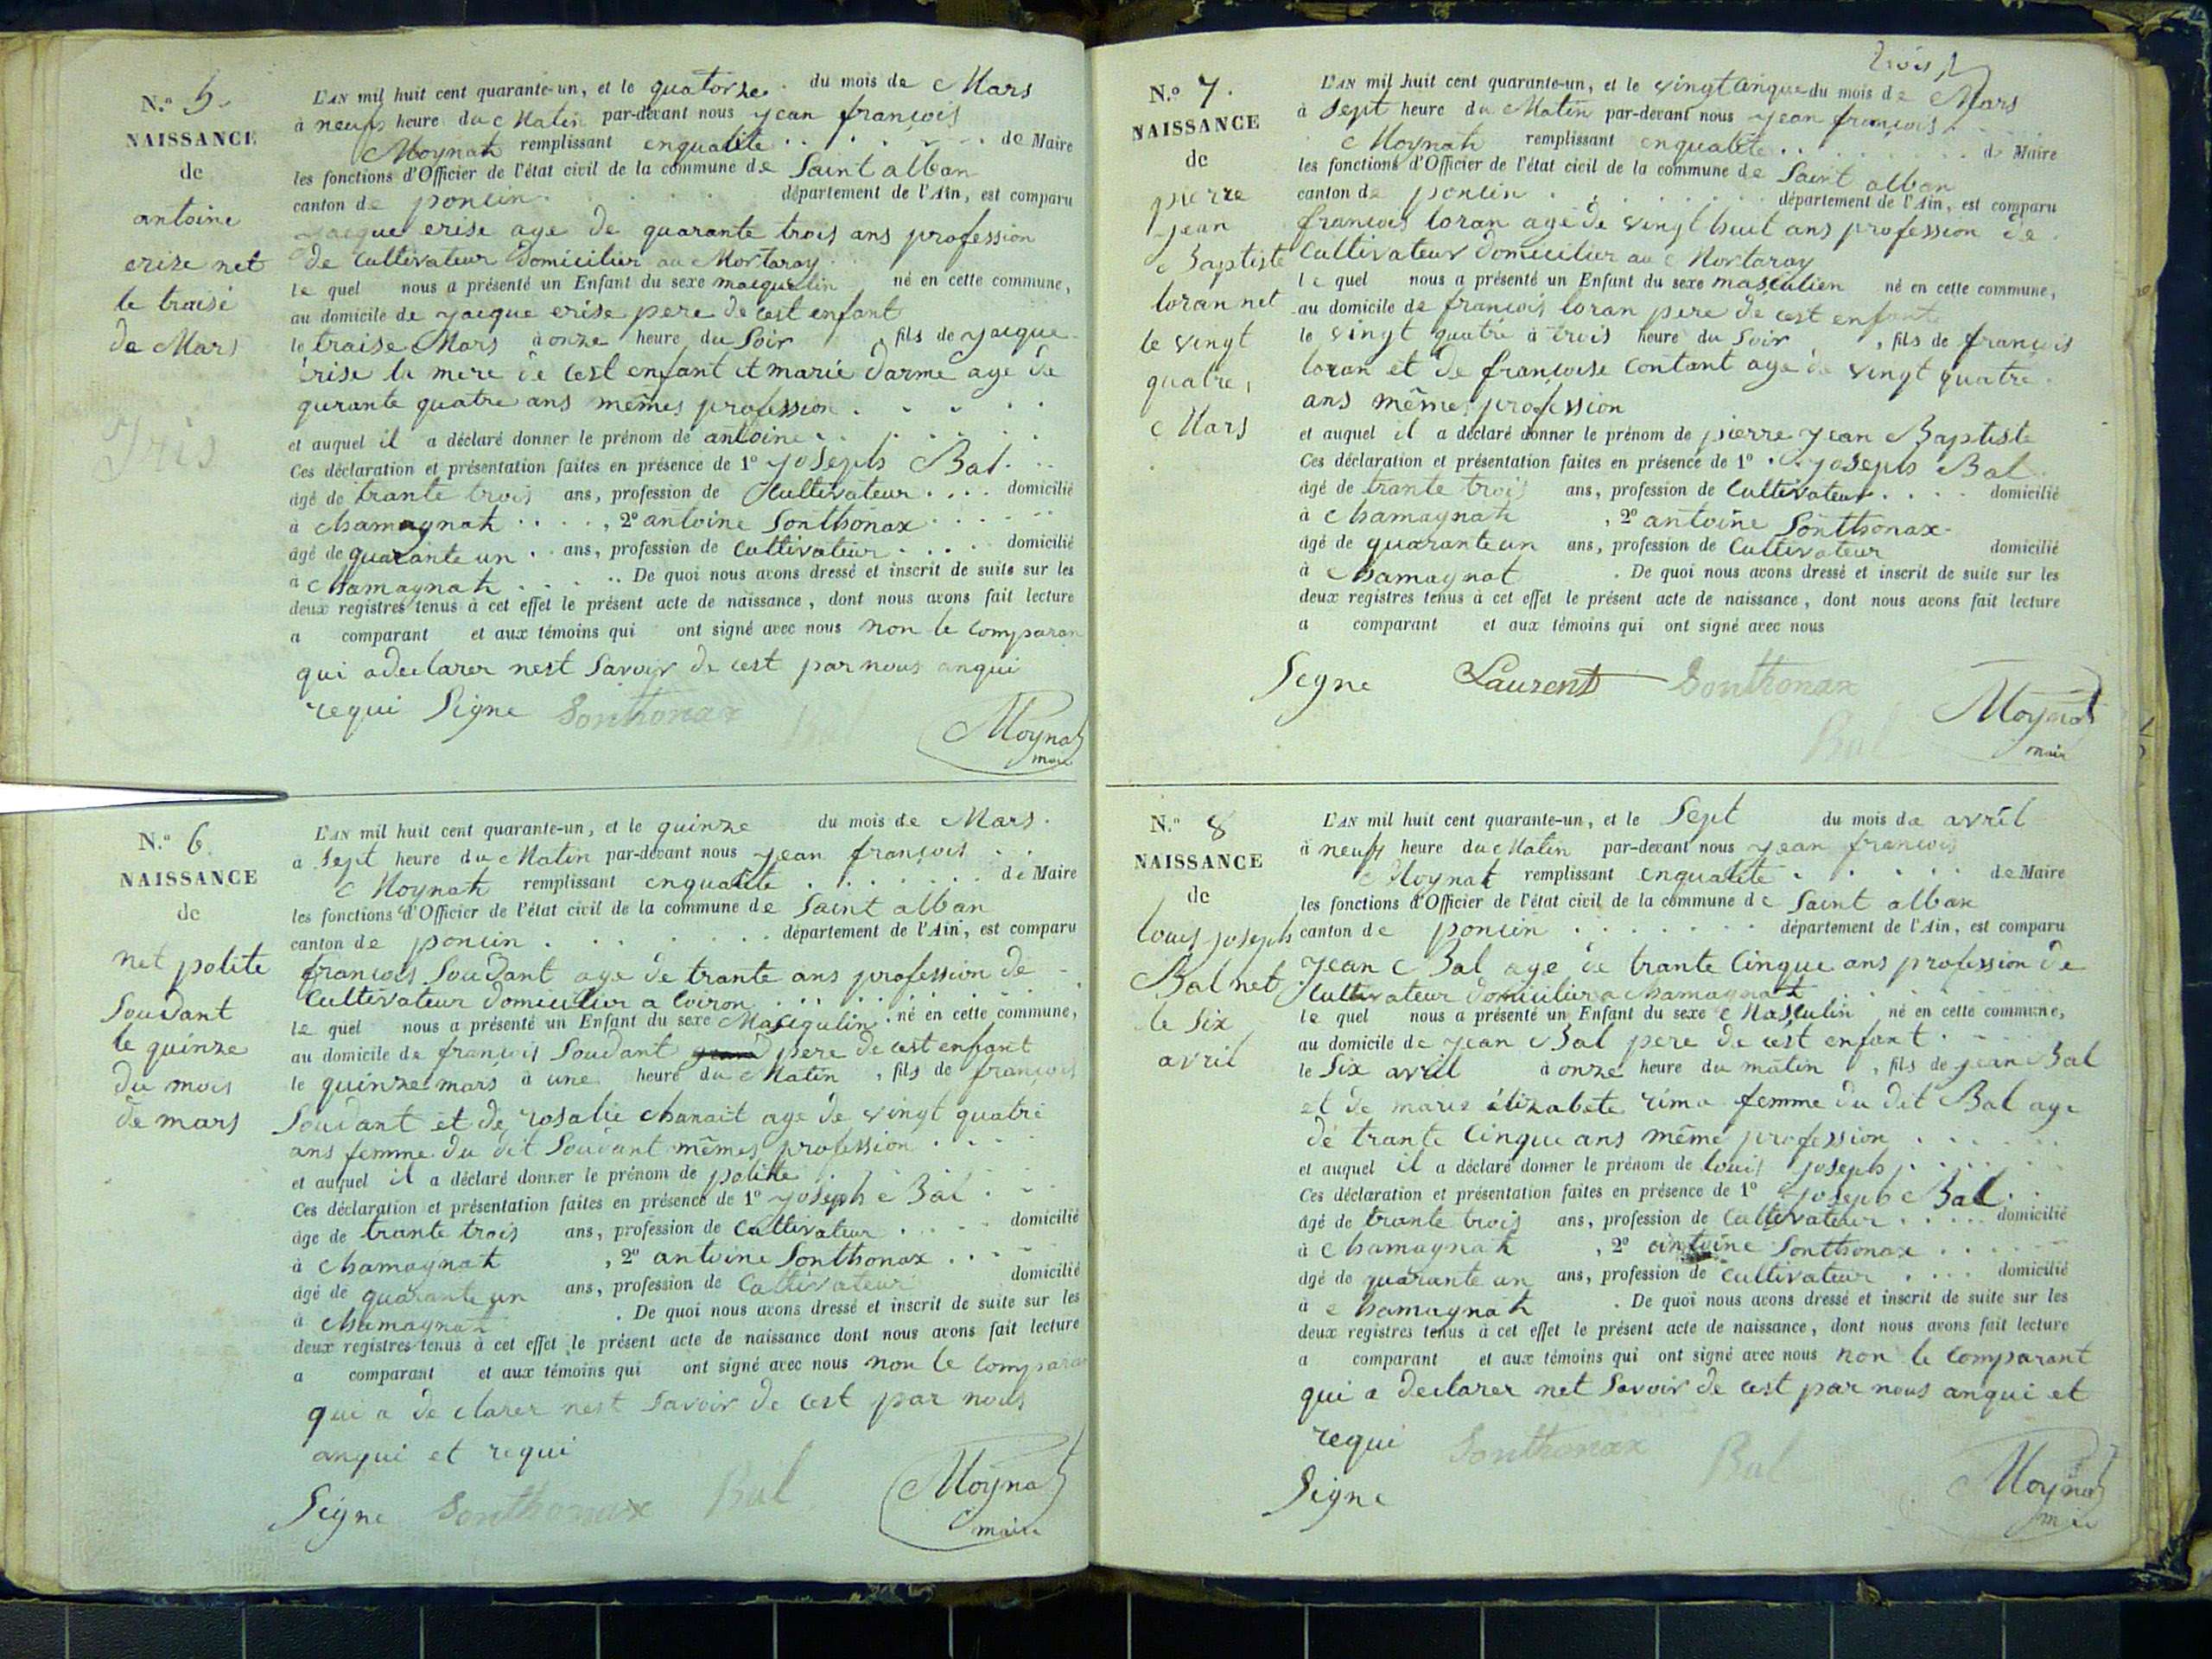 N.o 5.
NAISSANCE
de
antoine
erise net
le traisé
de Mars
Iris
L'AN mil huit cent quarante-un, et le quatorze du mois de Mars
à neufs heure du Matin par-devant nous jean françois
Moynat remplissant enqualité . . . . . . de Maire
les fonctions d'Officier de l'état civil de la commune de Saint alban
canton de poncin . . . . département de l'Ain, est comparu
jacque erise age de quarante trois ans profession
de cultivateur domicilier au Mortaray
le quel nous a présenté un Enfant du sexe masquelin né en cette commune,
au domicile de jacque erise pere de cest enfant
le traise Mars à onze heure du Soir , fils de jacque
erise la mere de cest enfant et marie darme age de
qurante quatre ans mêmes profession . . . . .
et auquel il a déclaré donner le prénom de antoine . . . . . .
Ces déclaration et présentation faites en présence de 1o josephs Bal . . .
âgé de trante trois ans, profession de Cultivateur . . . . domicilié
à chamagnat . . . . , 2o antoine Sonthonax . . . . .
âgé de quarante un . . ans, profession de Cultivateur . . . . domicilié
à chamagnat . . . . . . De quoi nous avons dressé et inscrit de suite sur les
deux registres tenus à cet effet le présent acte de naissance, dont nous avons fait lecture
a comparant et aux témoins qui ont signé avec nous non le comparan
qui a declarer nest Savoir de cest par nous anqui
requi Signe Sonthonax Bal Moynat
maire
N.o 6.
NAISSANCE
de
net polite
Soudant
le quinze
du mois
de mars
L'AN mil huit cent quarante-un, et le quinze du mois de Mars.
à Sept heure du Matin par-devant nous jean françois . .
Moynat remplissant enqualité . . . . . . . de Maire
les fonctions d'Officier de l'état civil de la commune de Saint alban
canton de poncin . . . . . . département de l'Ain, est comparu
françois Soudant age de trante ans profession de
Cultivateur domicilier a Coiron . . . . . . . .
le quel nous a présenté un Enfant du sexe Masequlin . né en cette commune,
au domicile de françois Soudant pere de cest enfant
le quinze mars à une heure du Matin , fils de françois
Soudant et de rosalie chanait age de vingt quatre
ans femme du dit Soudant mêmes profession . . . .
et auquel il a déclaré donner le prénom de polite . . . .
Ces déclaration et présentation faites en présence de 1o joseph Bal . . .
âge de trante trois ans, profession de Cultivateur . . . . domicilié
à chamagnat , 2o antoine Sonthonax . . . .
âgé de quarante un ans, profession de Cultivateur domicilié
à chamagnat . De quoi nous avons dressé et inscrit de suite sur les
deux registres tenus à cet effet le présent acte de naissance dont nous avons fait lecture
a comparant et aux témoins qui ont signé avec nous non le comparan
qui a de clarer nest Savoir de cest par nous
anqui et requi
Signe Sonthonax Bal Moynat
maire
trois
N.o 7.
NAISSANCE
de
pierre
jean
Baptiste
loran net
le vingt
quatre,
Mars
L'AN mil huit cent quarante-un, et le vingt cinque du mois de Mars
à Sept heure du Matin par-devant nous jean françois . . .
Moynat remplissant enqualité . . . . . . . de Maire
les fonctions d'Officier de l'état civil de la commune de Saint alban
canton de poncin . . . . . . . département de l'Ain, est comparu
françois loran age de vingt huit ans profession de
Cultivateur domicilier au Mortaray
le quel nous a présenté un Enfant du sexe masculien né en cette commune,
au domicile de françois loran pere de cest enfant
le vingt quatre à trois heure du Soir , fils de françois
loran et de françoise Contant age de vingt quatre
ans mêmes profession
et auquel il a déclaré donner le prénom de pierre jean Baptiste
Ces déclaration et présentation faites en présence de 1o . . josephs Bal
âgé de trante trois ans, profession de Cultivateur . . . . domicilié
à chamagnat , 2o antoine Sonthonax
âgé de quarante un ans, profession de Cultivateur domicilié
à chamagnat . De quoi nous avons dressé et inscrit de suite sur les
deux registres tenus à cet effet le présent acte de naissance, dont nous avons fait lecture
a comparant et aux témoins qui ont signé avec nous
Segne Laurent Sonthonax Moynat
Bal maire
N.o 8
NAISSANCE
de
louis josephs
Bal net
le Six
avril
L'AN mil huit cent quarante-un, et le Sept du mois de avril
à neufs heure du Matin par-devant nous jean françois
Moynat remplissant enqualité . . . . . . de Maire
les fonctions d'Officier de l'état civil de la commune de Saint alban
canton de poncin . . . . . . . département de l'Ain, est comparu
jean Bal age de trante Cinque ans profession de
Cultivateur domicilier a chamagnat
le quel nous a présenté un Enfant du sexe Masculin né en cette commune,
au domicile de jean Bal pere de cest enfant . . .
le Six avril à onze heure du matin , fils de jean Bal
et de marie élizabete rima femme du dit Bal age
de trante Cinque ans même profession . . . . . .
et auquel il a déclaré donner le prénom de louis josephs . . . . .
Ces déclaration et présentation faites en présence de 1o josephs Bal . .
âgé de trante trois ans, profession de Cultivateur . . . . . domicilié
à chamagnat , 2o antoine Sonthonax . . . . .
âgé de quarante un ans, profession de Cultivateur . . . . domicilié
à chamagnat . De quoi nous avons dressé et inscrit de suite sur les
deux registres tenus à cet effet le présent acte de naissance, dont nous avons fait lecture
a comparant et aux témoins qui ont signé avec nous non le comparant
qui a declarer net Savoir de cest par nous anqui et
requi Sonthonax Bal Moynat
Signe maire